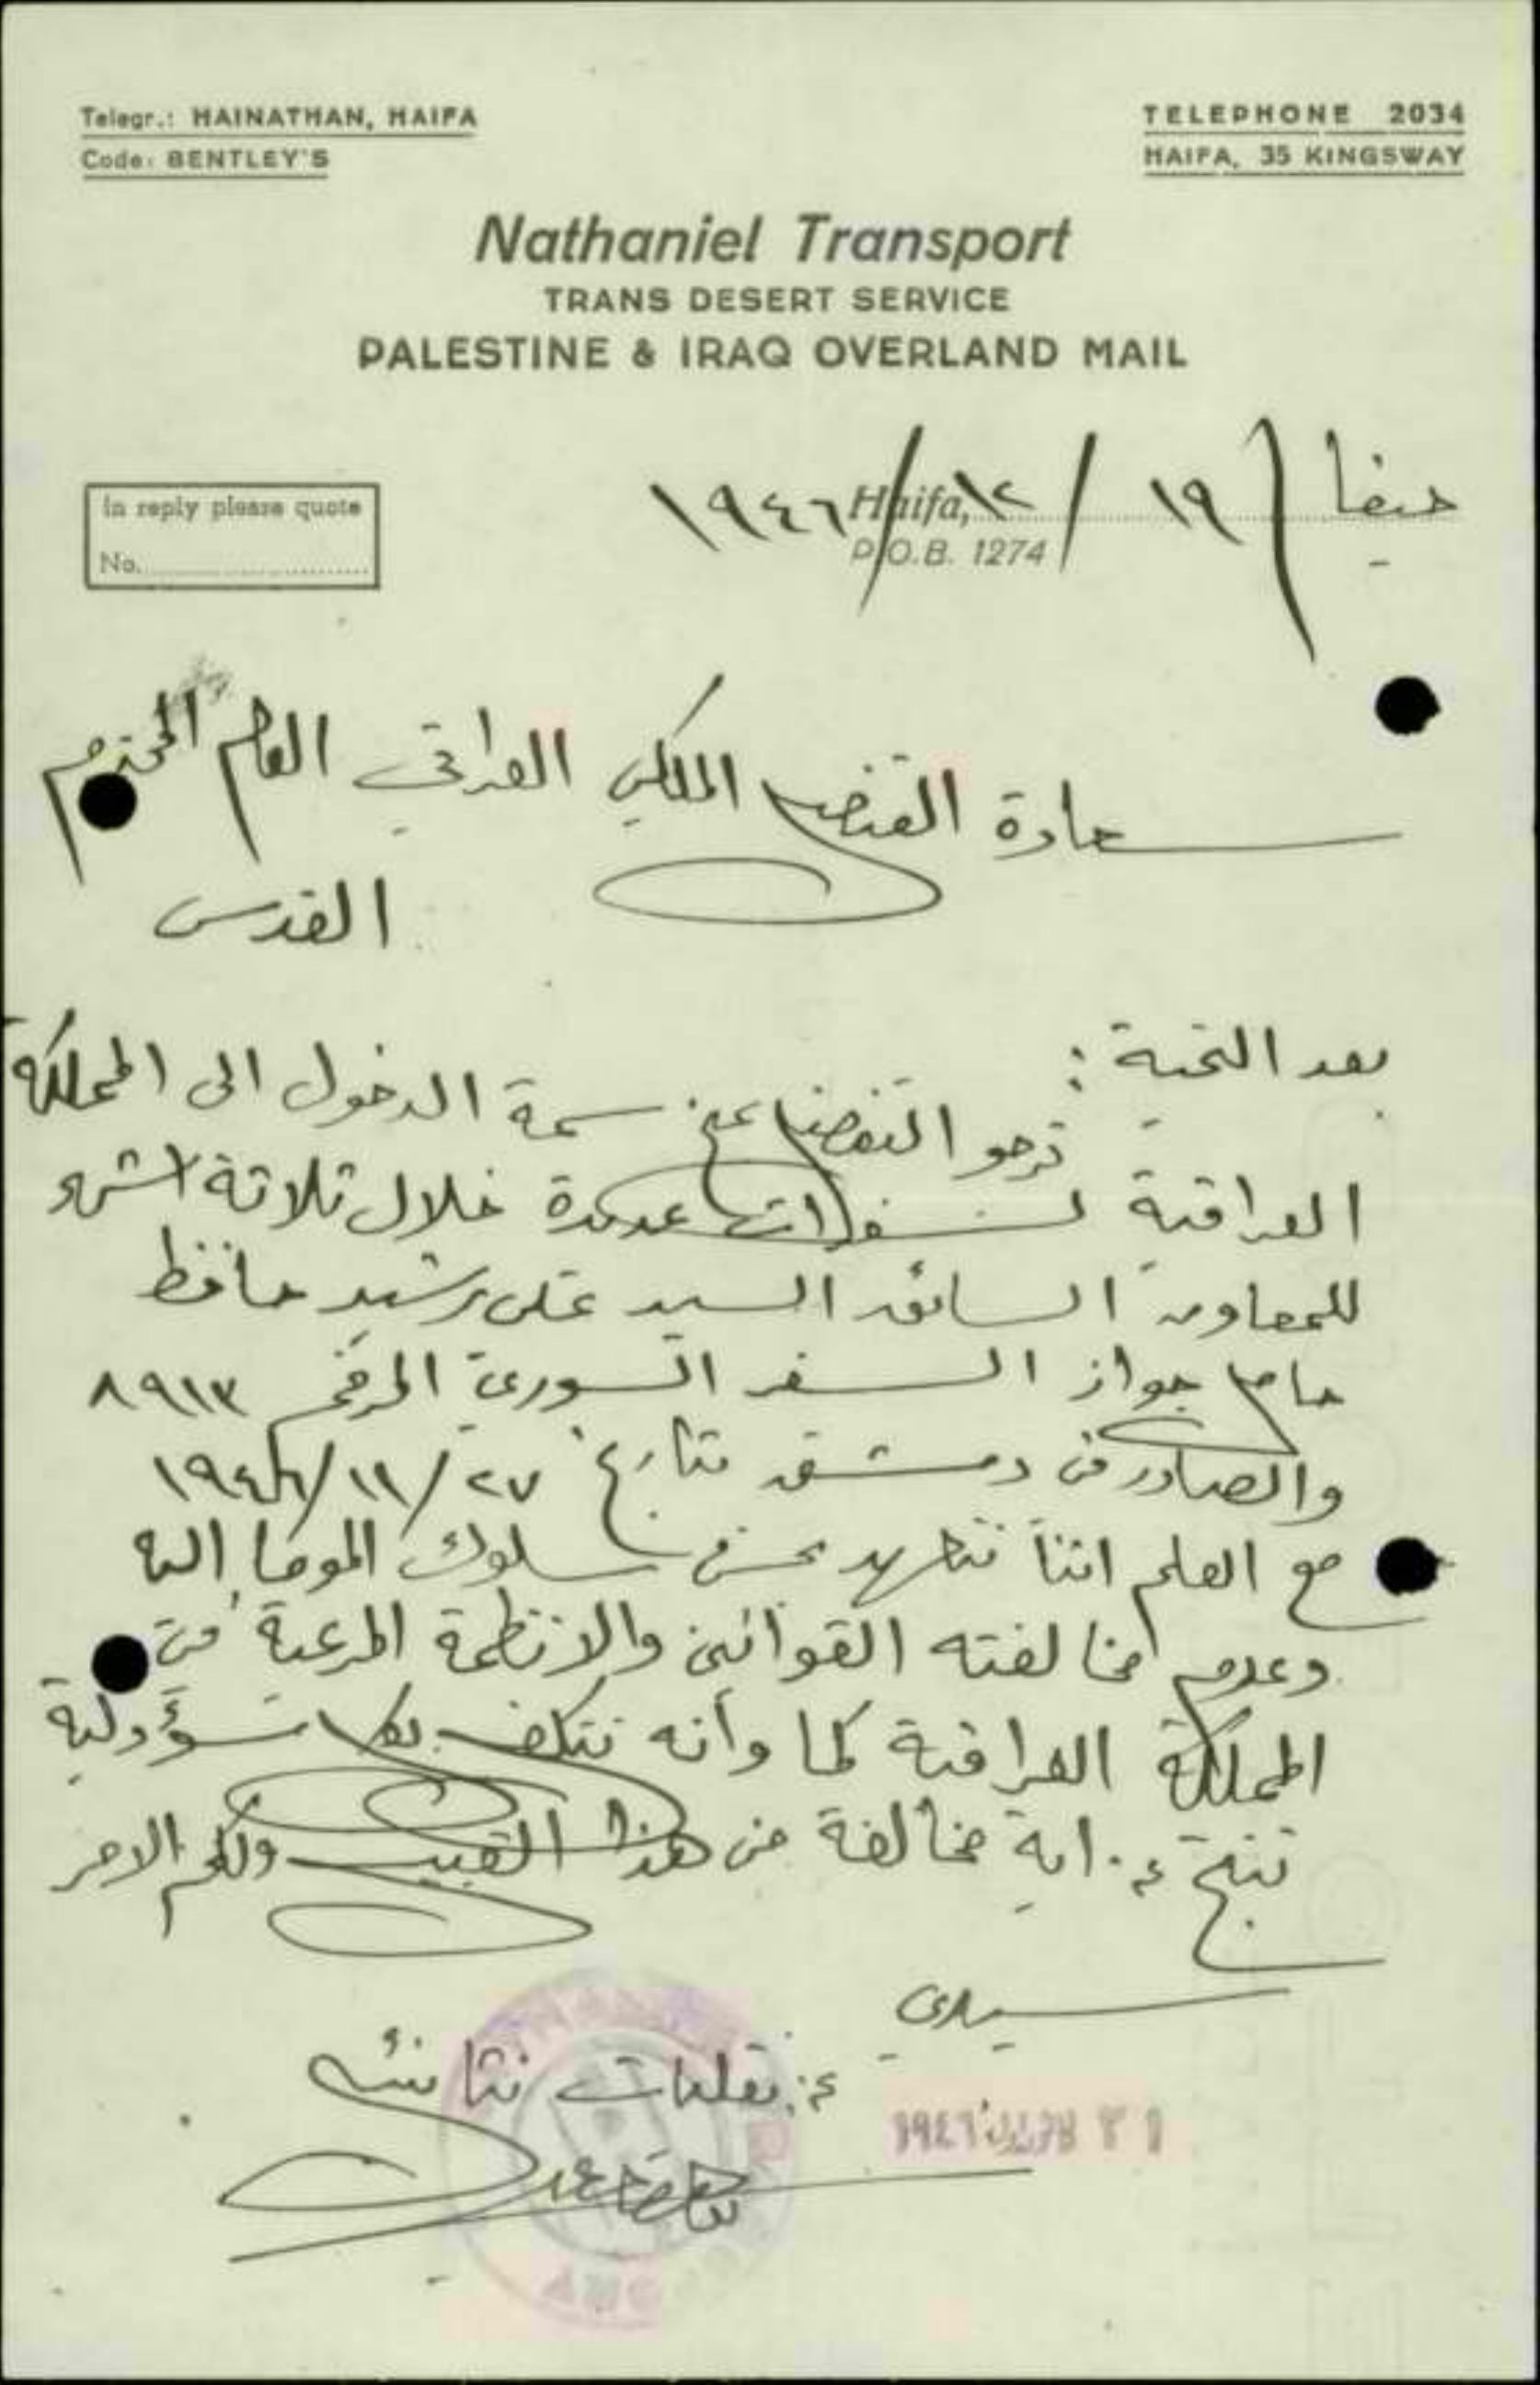 Telegr.: HAINATHAN, HAIFA
Code: BENTLEY'S
TELEPHONE 2034
HAIFA, 35 KINGSWAY
Nathaniel Transport
TRANS DESERT SERVICE
PALESTINE & IRAQ OVERLAND MAIL
In reply please quote
No.
Haifa,
P.O.B. 1274
حيفا ١٩/١٢/١٩٤٦
سعادة القنصل الملكي العراقي العام المحترم
القدس
بعد التحية:
نرجو التفضل بمنح سمة الدخول الى المملكة
العراقية لسفرات عديدة خلال ثلاثة اشهر
للمعاون السائق السيد علي رشيد حافظ
حامل جواز السفر السوري المرقم ٨٩١٣
والصادر في دمشق بتاريخ ٢٧/١١/١٩٤٦
مع العلم اننا نتعهد بحسن سلوك الموما اليه
وعدم مخالفته القوانين والانظمة المرعية في
المملكة العراقية كما وأنه نتكفل بكل مسؤولية
تنتج عن اية مخالفة من هذا القبيل ولكم الامر
سيدي
عن نقليات نتانئيل